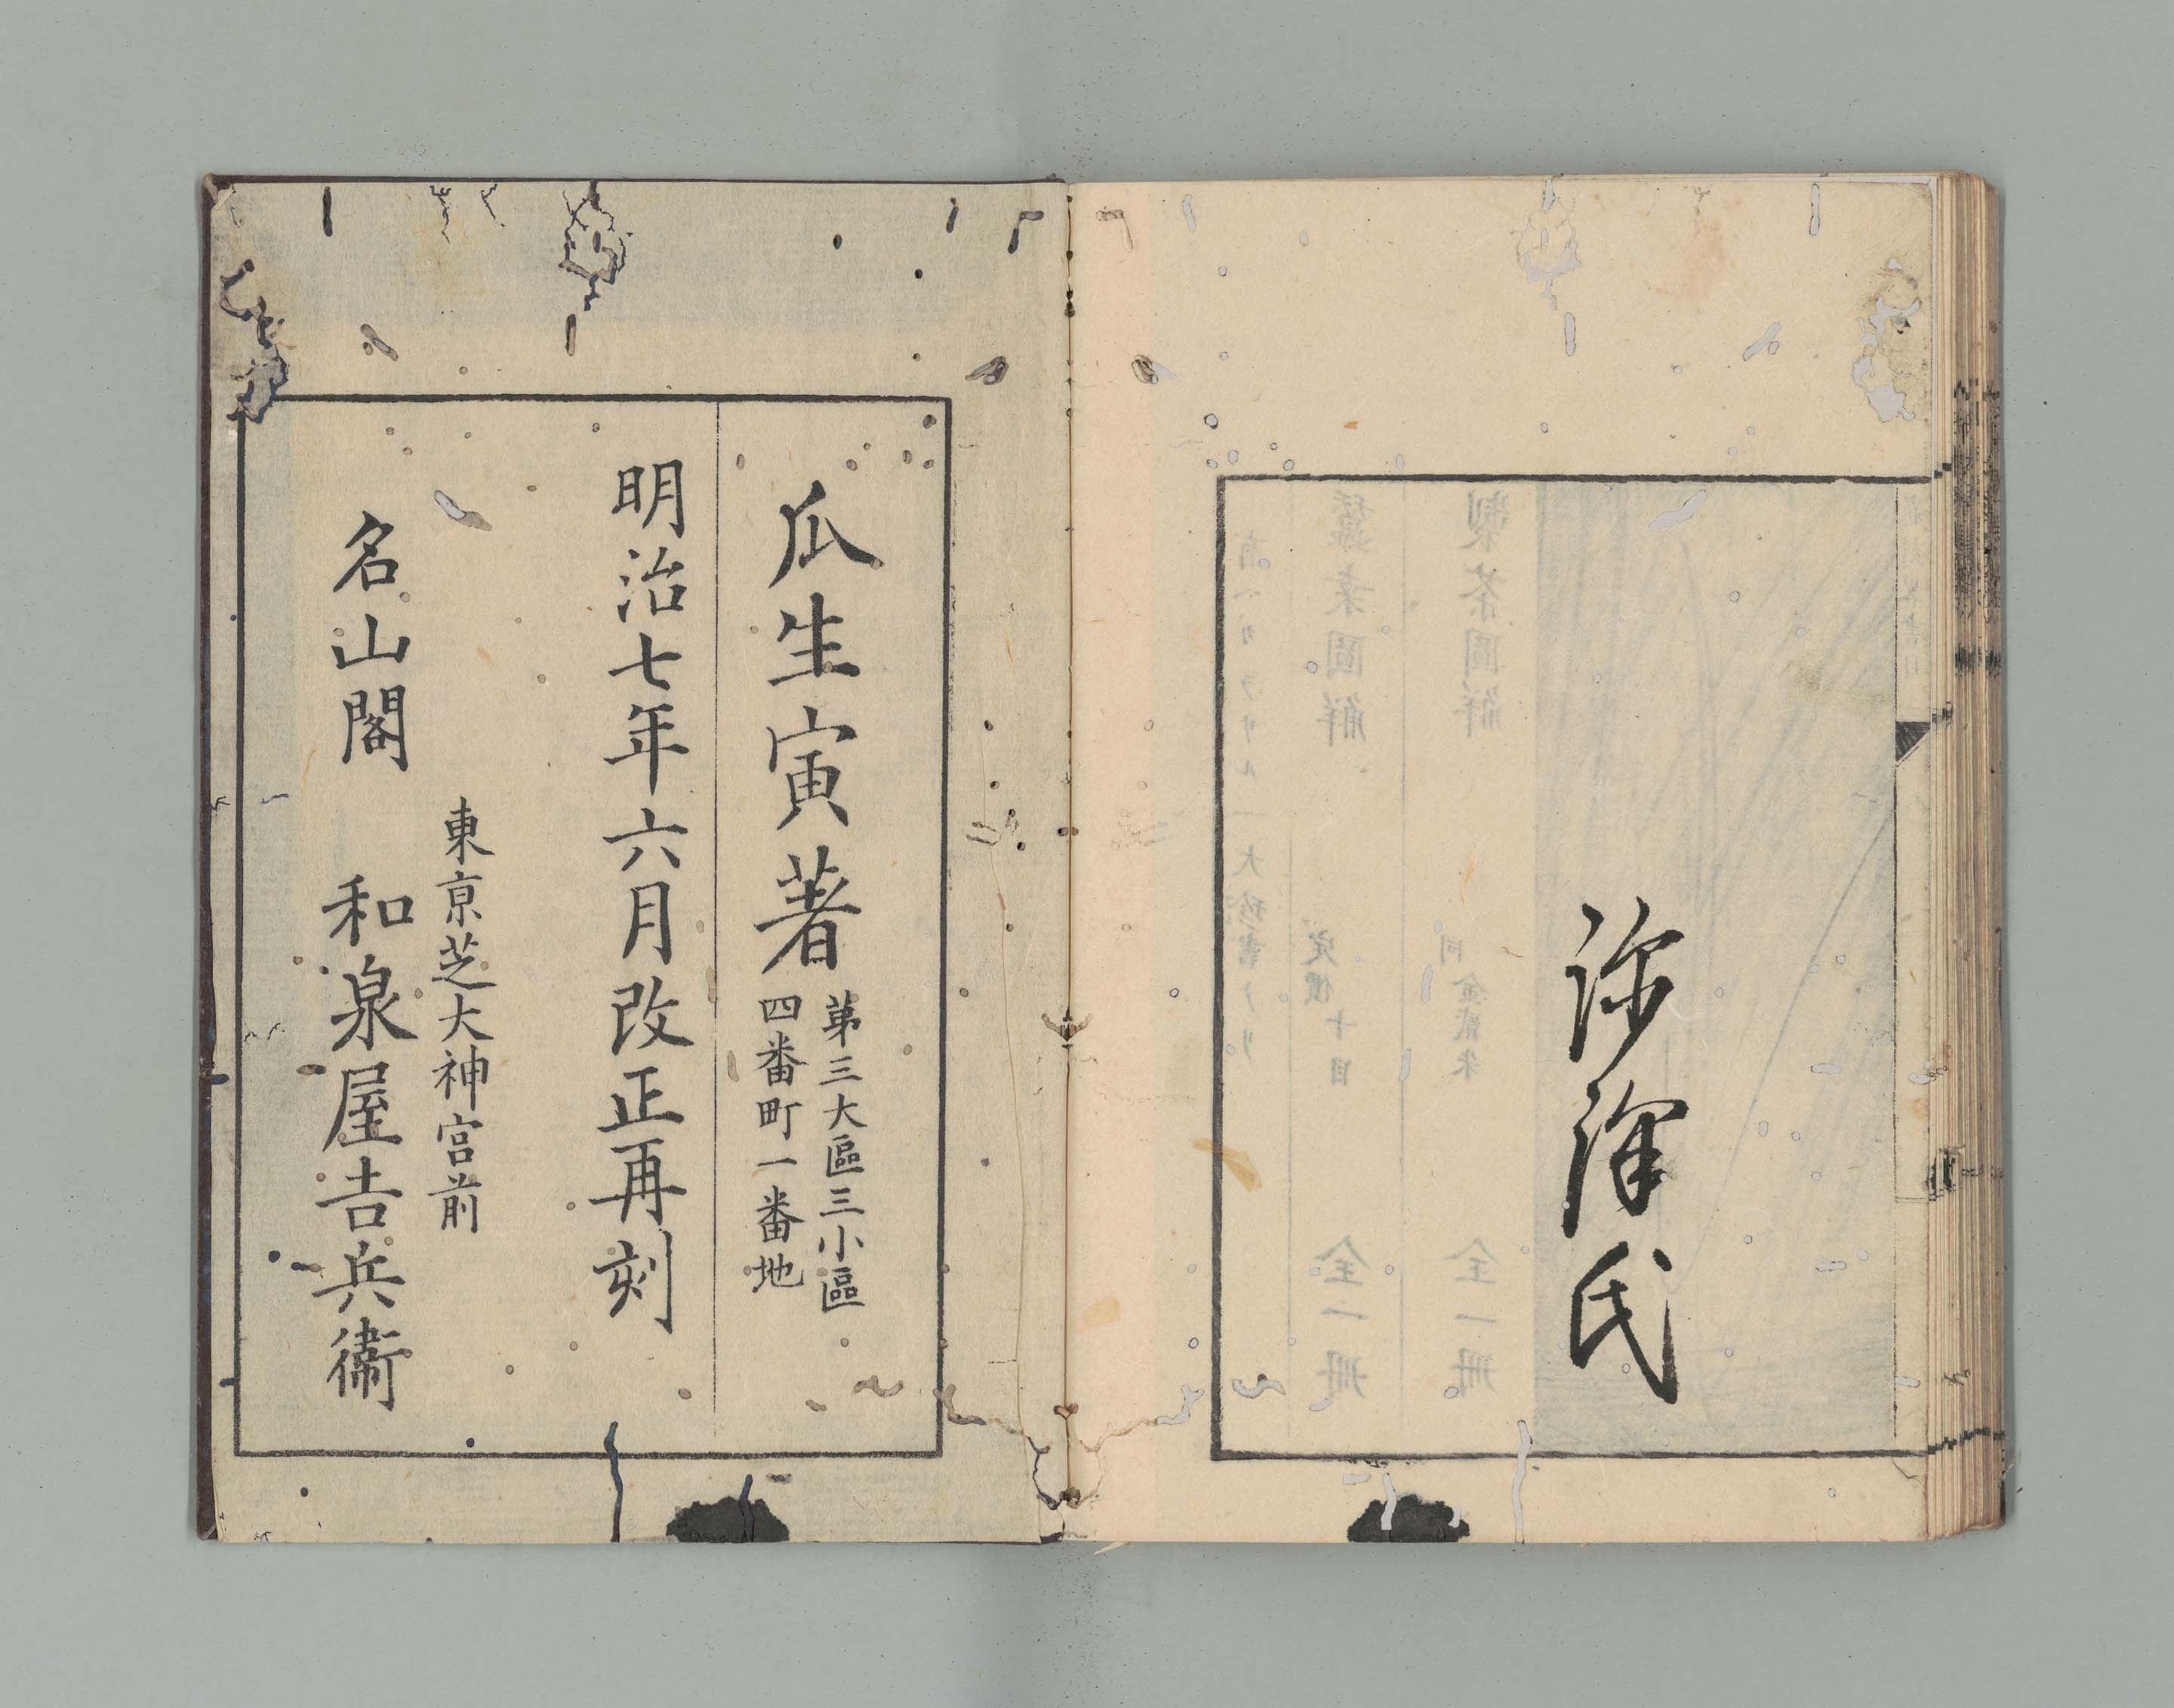 祢津氏
瓜生寅著
第三大區三小區
四番町一番地
明治七年六月改正再刻
東京芝大神宮前
名山閣 和泉屋吉兵衞